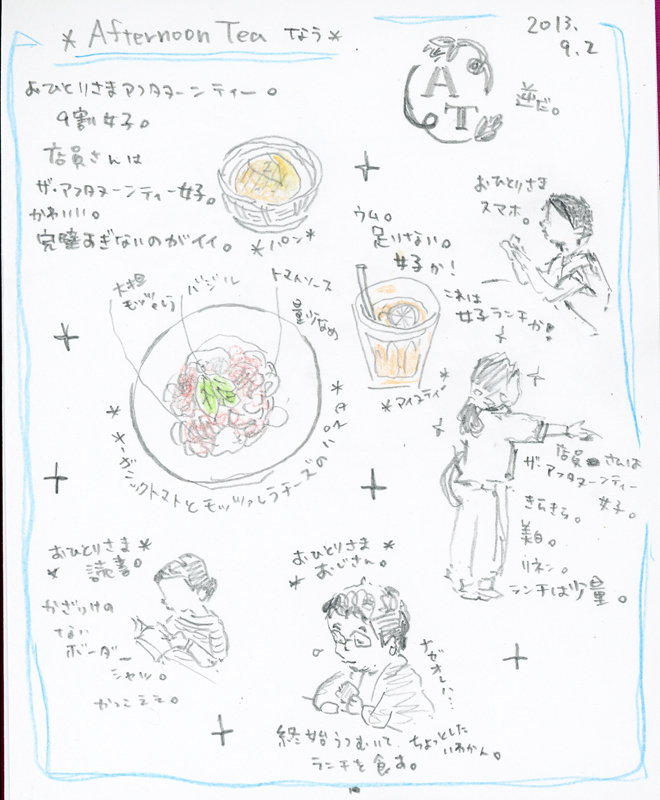 * Afternoon Tea なう *
2013.
9.2
おひとりさまアフタヌーンティー。
9割女子。
店員さんは
ザ・アフタヌーンティー女子。
かわいい。
完璧すぎないのがイイ。
*パン*
A
T
逆だ。
おひとりさま
スマホ。
ウム。
足りない。
女子か!
これは
女子ランチか!
大担
モッツァレラ
バジル
トマトソース
量少なめ
*アイスティ*
*オーガニックトマトとモッツァレラチーズのパスタ*
店員さんは
ザ・アフタヌーンティー
女子。
きらきら。
美白。
リネン。
ランチは少量。
おひとりさま*
*読書。
かざりけの
ない
ボーダー
シャツ。
かっこええ。
おひとりさま*
*おじさん。
ナゼオレハ…
終始うつむいて
ランチを食す。
ちょっとした
いわかん。